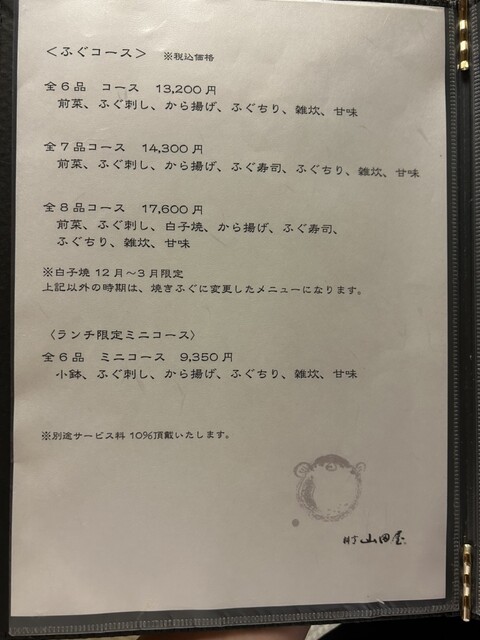 ＜ふぐコース＞　※税込価格
全６品　コース　13,200円
前菜、ふぐ刺し、から揚げ、ふぐちり、雑炊、甘味
全７品コース　14,300円
前菜、ふぐ刺し、から揚げ、ふぐ寿司、ふぐちり、雑炊、甘味
全８品コース　17,600円
前菜、ふぐ刺し、白子焼、から揚げ、ふぐ寿司、
ふぐちり、雑炊、甘味
※白子焼 12月～3月限定
上記以外の時期は、焼きふぐに変更したメニューになります。
〈ランチ限定ミニコース〉
全６品　ミニコース　9,350円
小鉢、ふぐ刺し、から揚げ、ふぐちり、雑炊、甘味
※別途サービス料 10%頂戴いたします。
山田屋